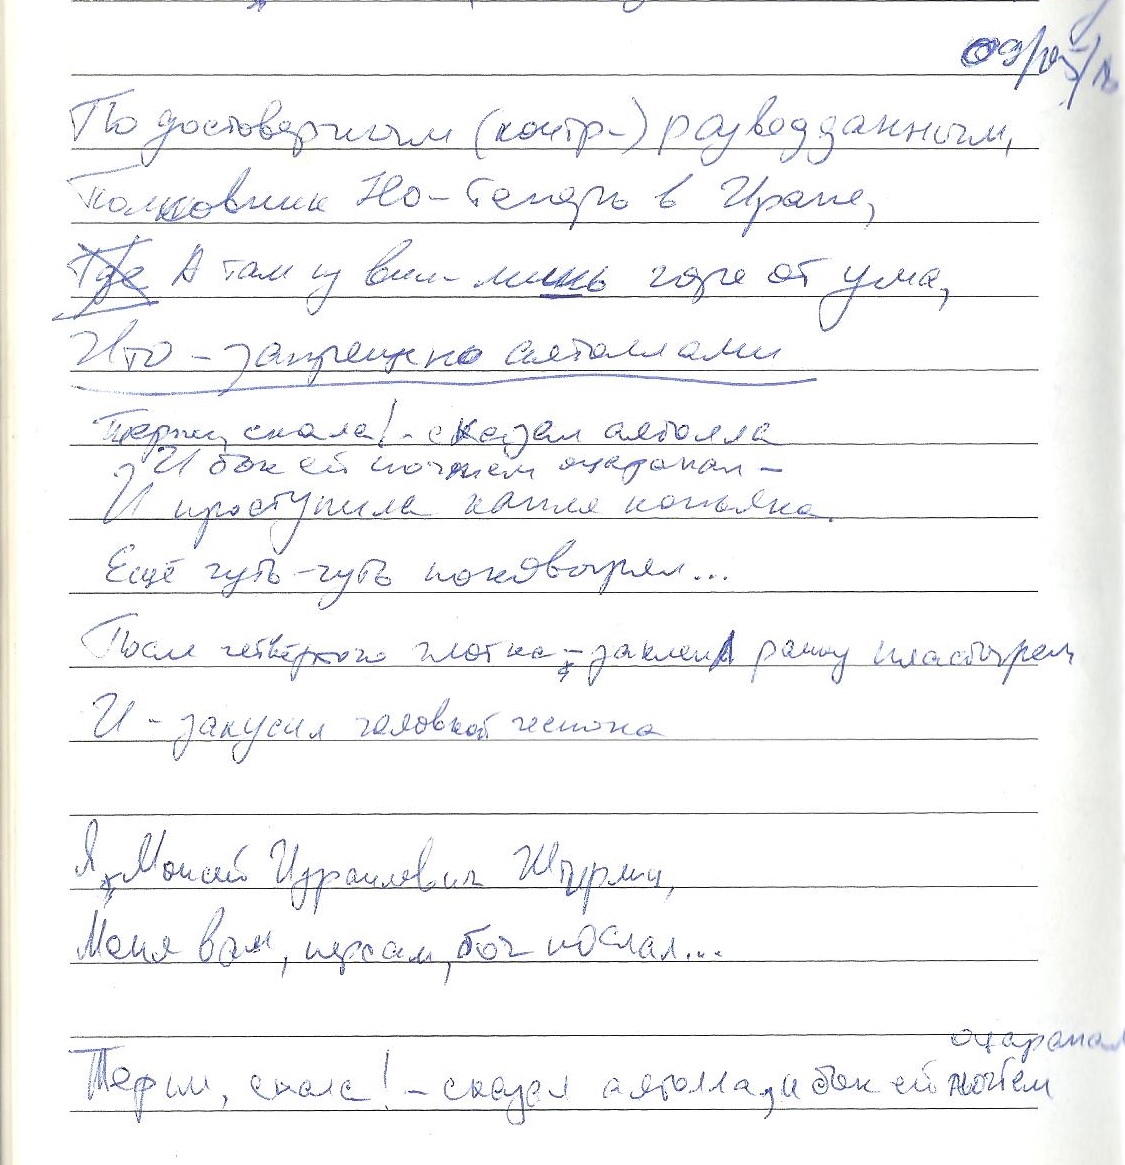 По достоверным (контр-) разведданным,
Полковник Но-Теперь в Иране,
Где А там из вин - лишь горе от ума,
Что - запрещено аятоллами
Терпи, скала! - сказал аятолла
И бок ей ногтем оцарапал -
И проступила капля коньяка.
Ещё чуть-чуть поковырял...
После четвёртого глотка - заклеил ранку пластырем
И - закусил головкой чеснока
Я, Моисей Израилевич
Меня вам, персам, бог послал...
оцарапал
Терпи, скала! - сказал аятолла, и бок ей ногтем